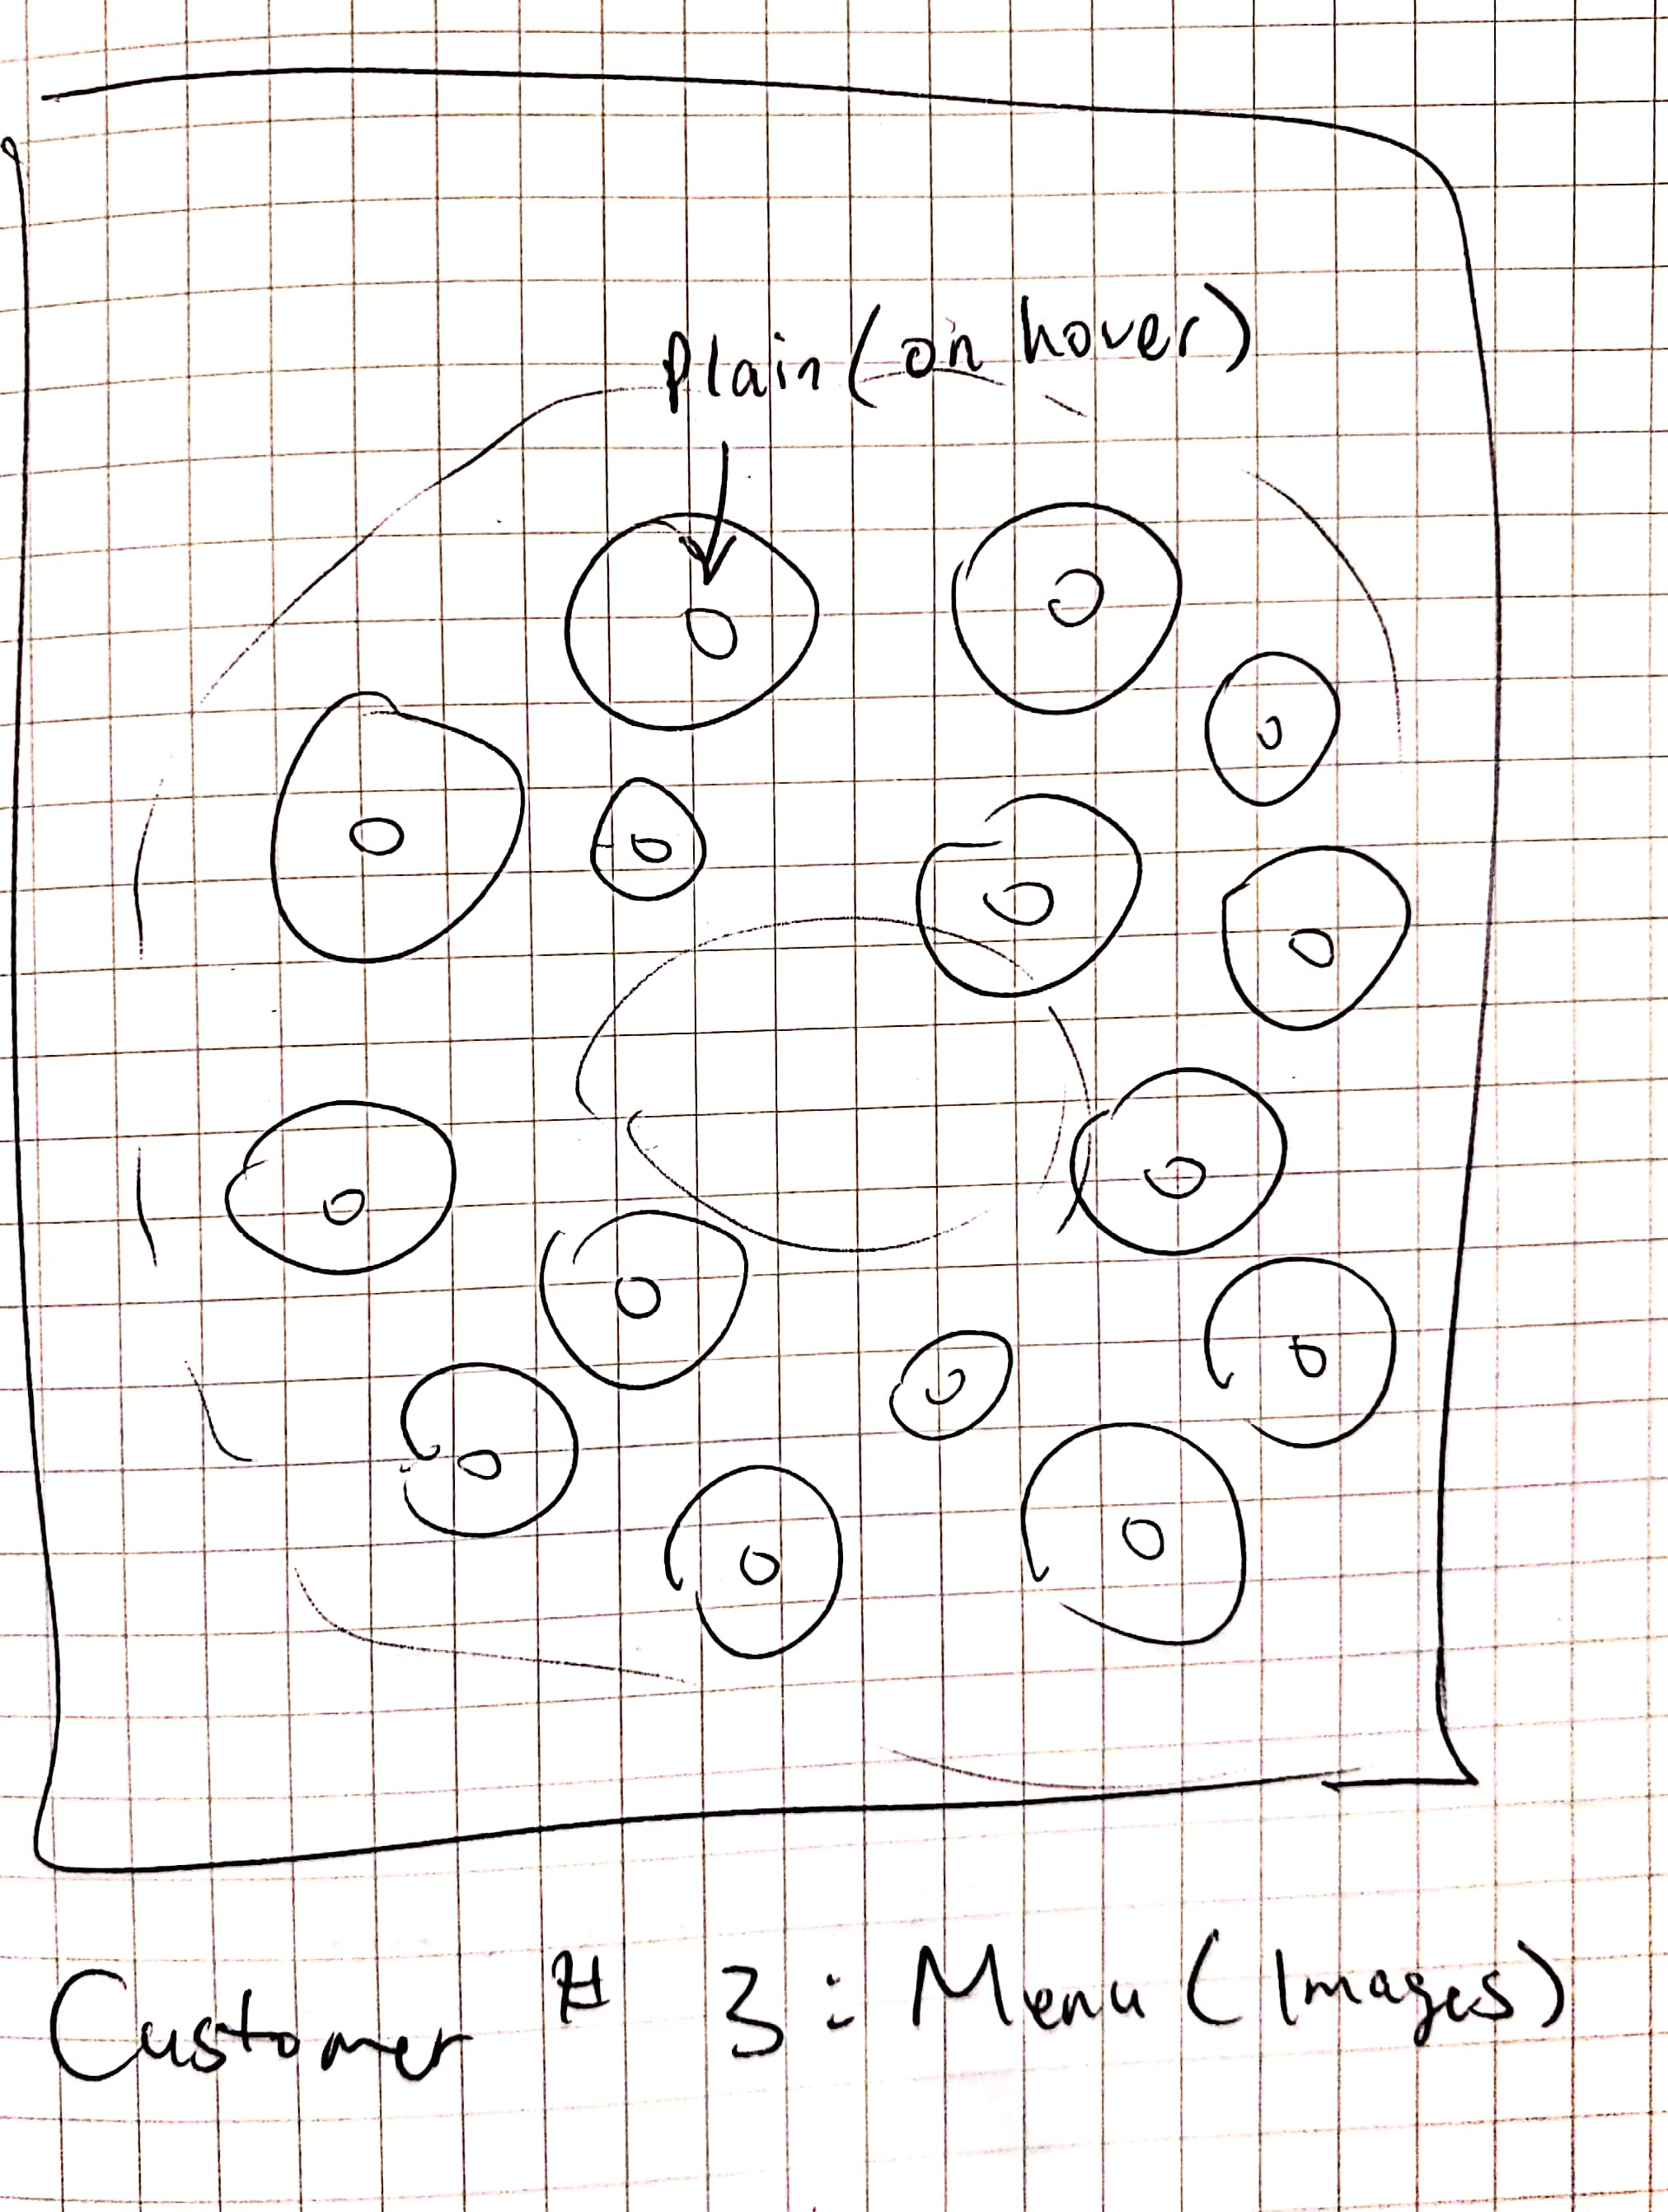 Plain (on hover)
Customer # 3: Menu (Images)